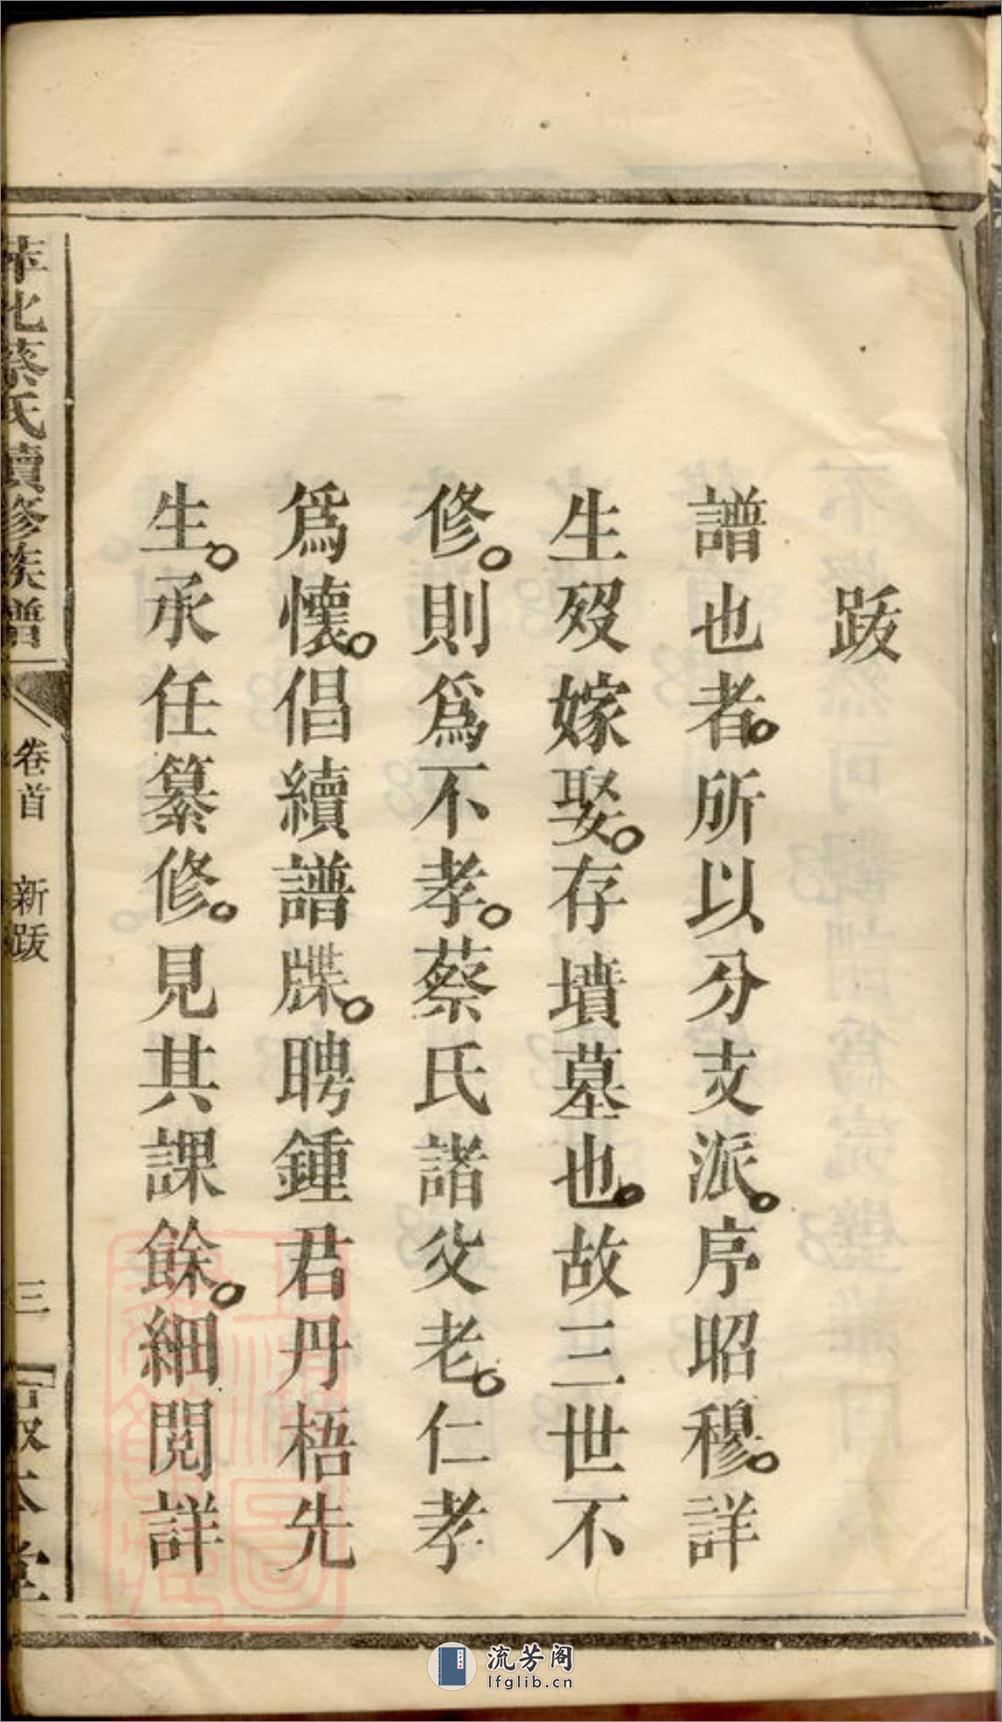 跋
譜也者。所以分支派。序昭穆。詳
生歿嫁娶。存墳墓也。故三世不
修。則爲不孝。蔡氏諸父老。仁孝
爲懷。倡續譜牒。聘鍾君丹梧先
生。承任纂修。見其課餘。細閱詳
萍北蔡氏續修族譜
卷首 新跋
三
堂
流芳阁
lfglib.cn